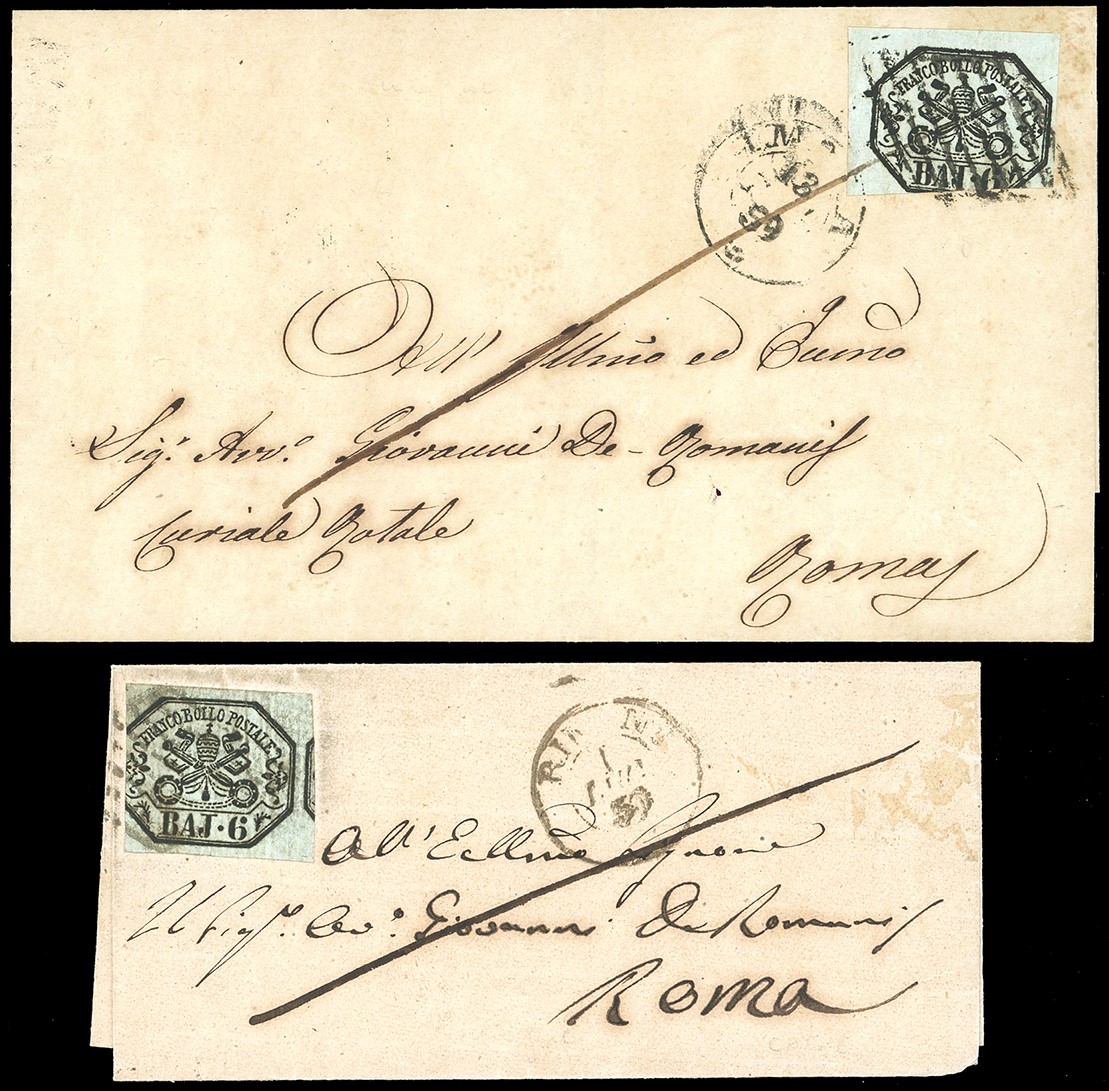 FRANCO BOLLO POSTALE
BAJ·6
18
59
A
All' Illmo ed Eccmo
Sigr. Avvo. Giovanni De-Romanis
Curiale Rotale
Roma
FRANCO BOLLO POSTALE
BAJ·6
RI
1
All' Ecllmo Signore
Il Sigr. Avo. Giovanni De Romanis
Roma